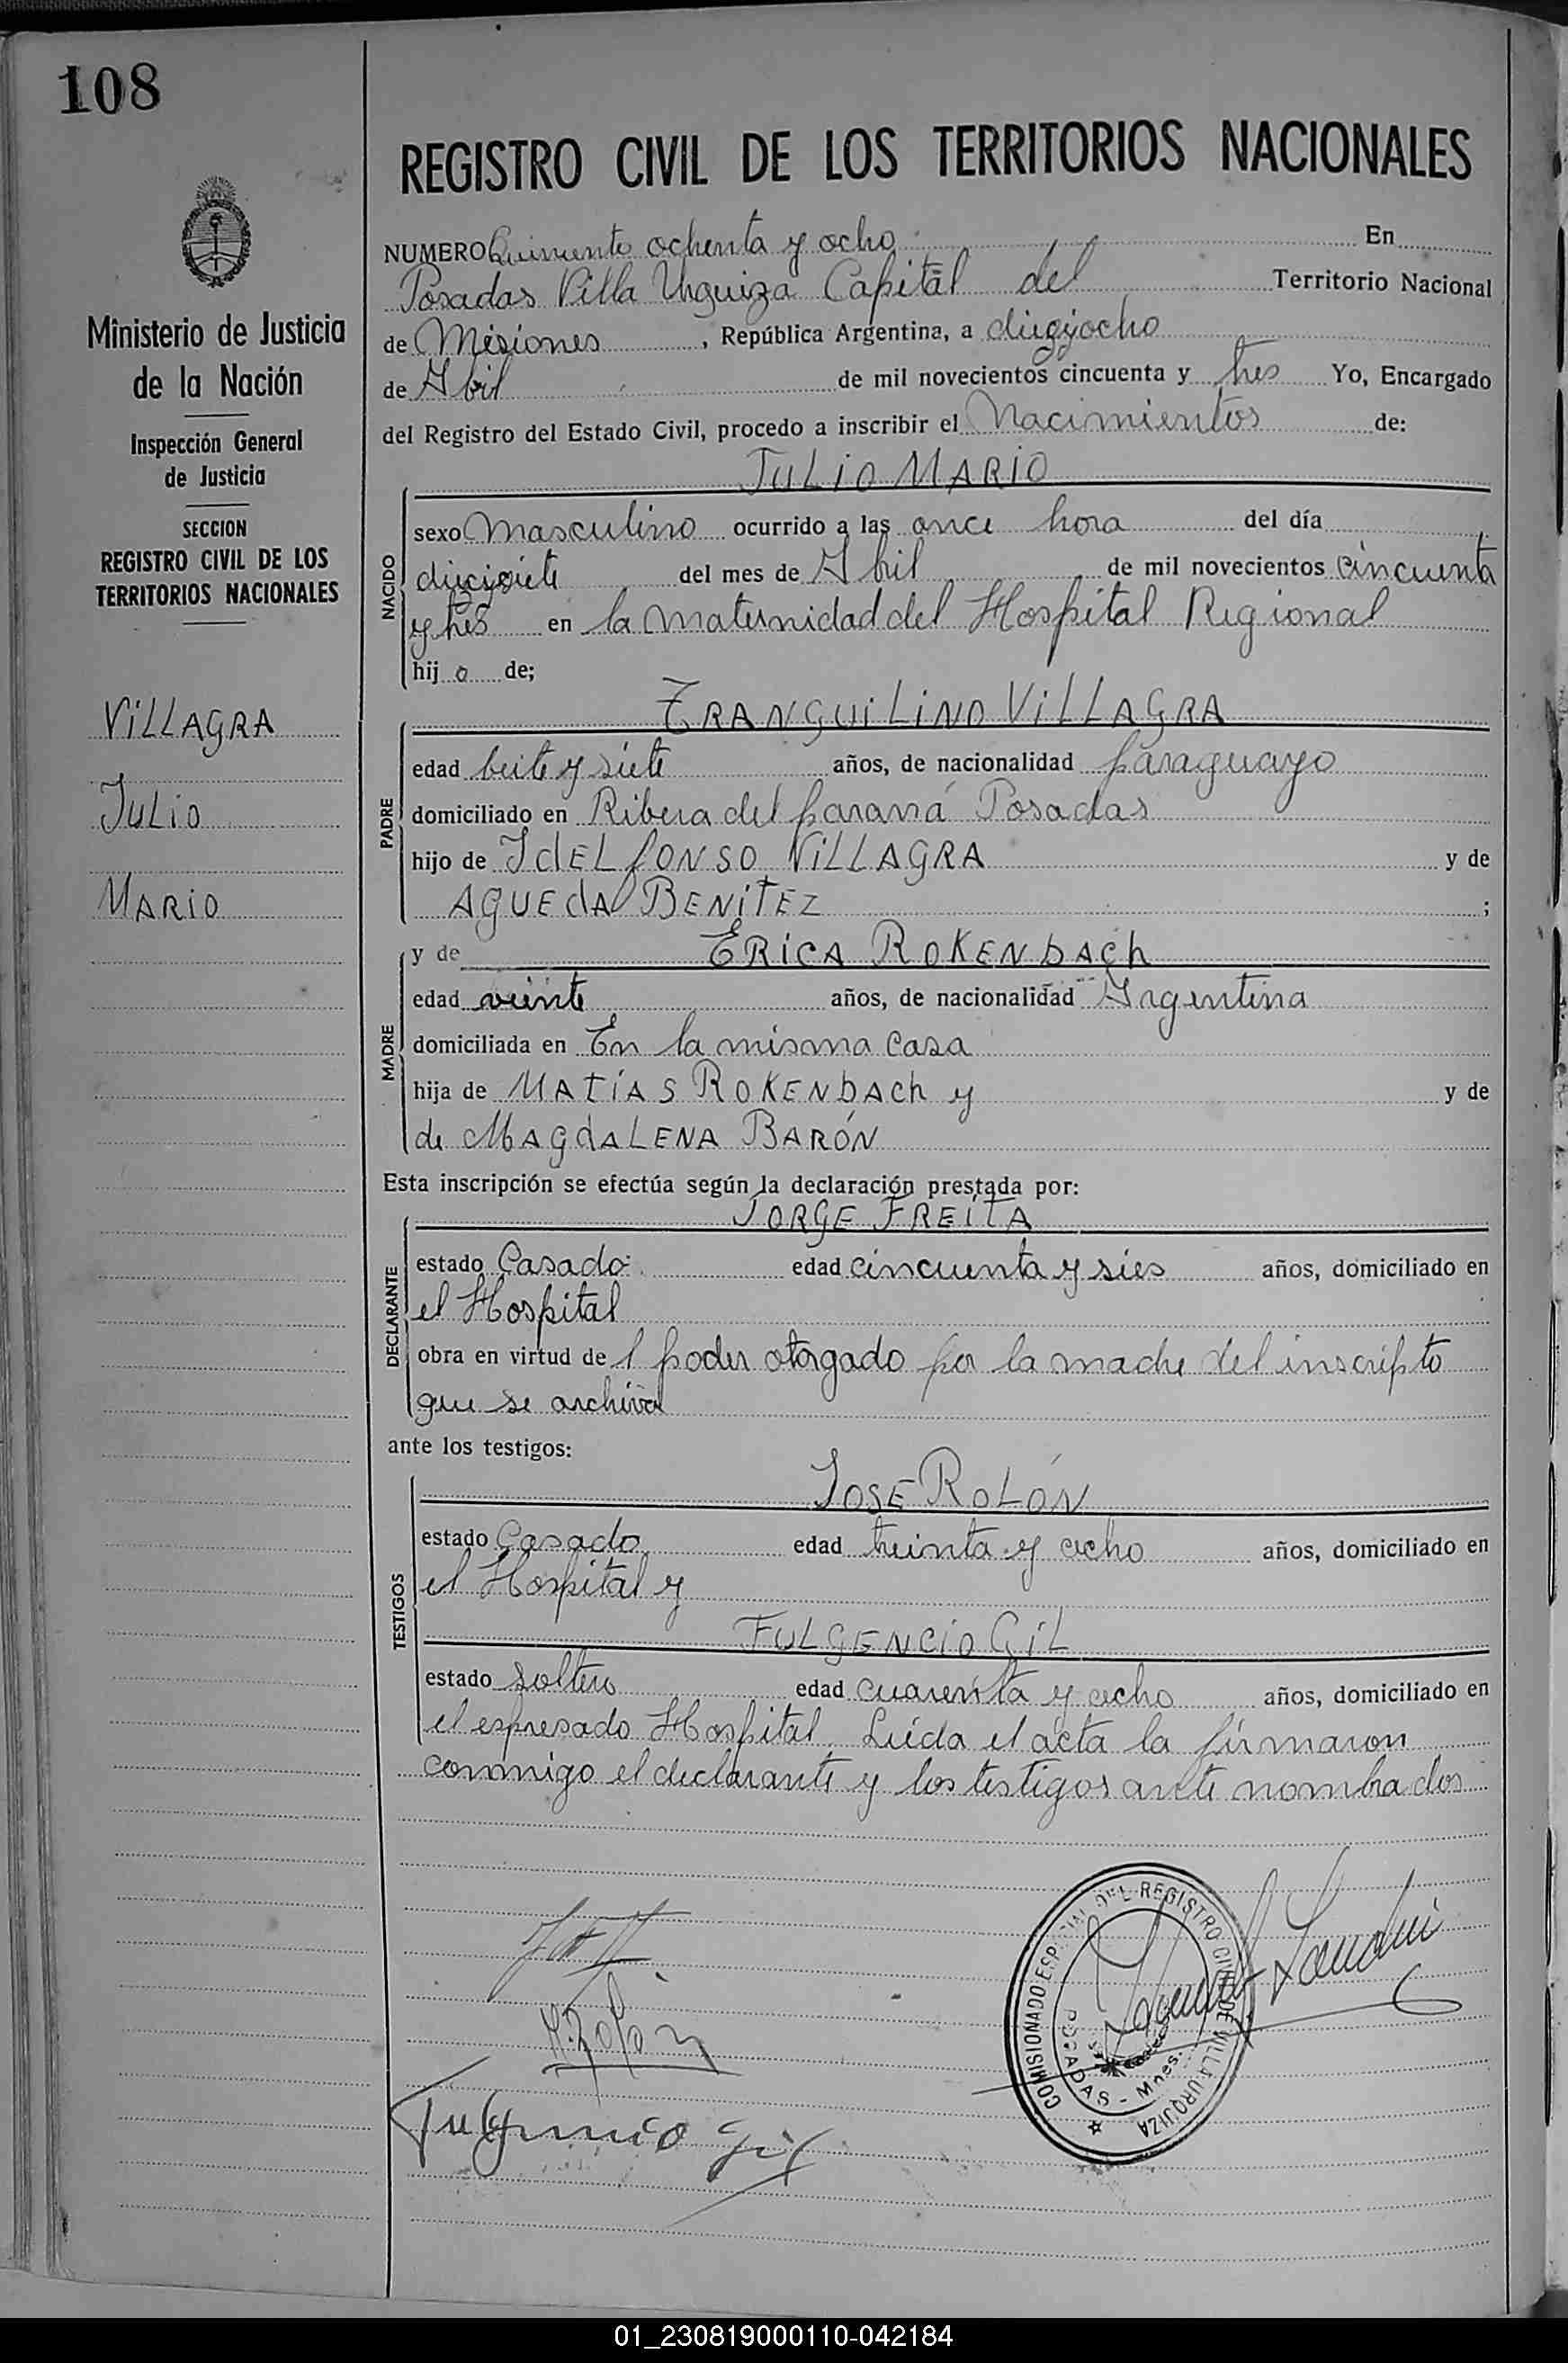 108
REGISTRO CIVIL DE LOS TERRITORIOS NACIONALES
Ministerio de Justicia
de la Nación
Inspección General
de Justicia
SECCION
REGISTRO CIVIL DE LOS
TERRITORIOS NACIONALES
VILLAGRA
JULIO
MARIO
NUMERO Quiniento ochenta y ocho En
Posadas Villa Urquiza Capital del Territorio Nacional
de Misiones, República Argentina, a diezyocho
de Abril de mil novecientos cincuenta y tres Yo, Encargado
del Registro del Estado Civil, procedo a inscribir el Nacimientos de:
JULIO MARIO
NACIDO
sexo Masculino ocurrido a las once hora del día
diecisiete del mes de Abril de mil novecientos cincuenta
y tres en la maternidad del Hospital Regional
hij o de;
TRANQUILINO VILLAGRA
PADRE
edad beite y siete años, de nacionalidad paraguayo
domiciliado en Ribera del paraná Posadas
hijo de IdELfONSO VILLAGRA y de
AGUEdA BENITEZ ;
y de ERICA ROKENbACh
MADRE
edad veinte años, de nacionalidad Argentina
domiciliada en En la misma casa
hija de MATÍAS ROKENbACh y y de
de MAGdALENA BARÓN
Esta inscripción se efectúa según la declaración prestada por:
JORGE FREITA
DECLARANTE
estado Casado edad cincuenta y sies años, domiciliado en
el Hospital
obra en virtud de l poder otorgado por la madre del inscripto
que se archiva
ante los testigos:
JOSE ROLÓN
TESTIGOS
estado Casado edad treinta y ocho años, domiciliado en
el Hospital y
FULGENCIO GIL
estado soltero edad cuarenta y ocho años, domiciliado en
el espresado Hospital. Leida el acta la firmaron
conmigo el declarante y los testigos ante nombrados
COMISIONADO ESPECIAL DEL REGISTRO CIVIL DE VILLA URQUIZA
POSADAS - Mnes.
Fulgencio Gil
01_230819000110-042184